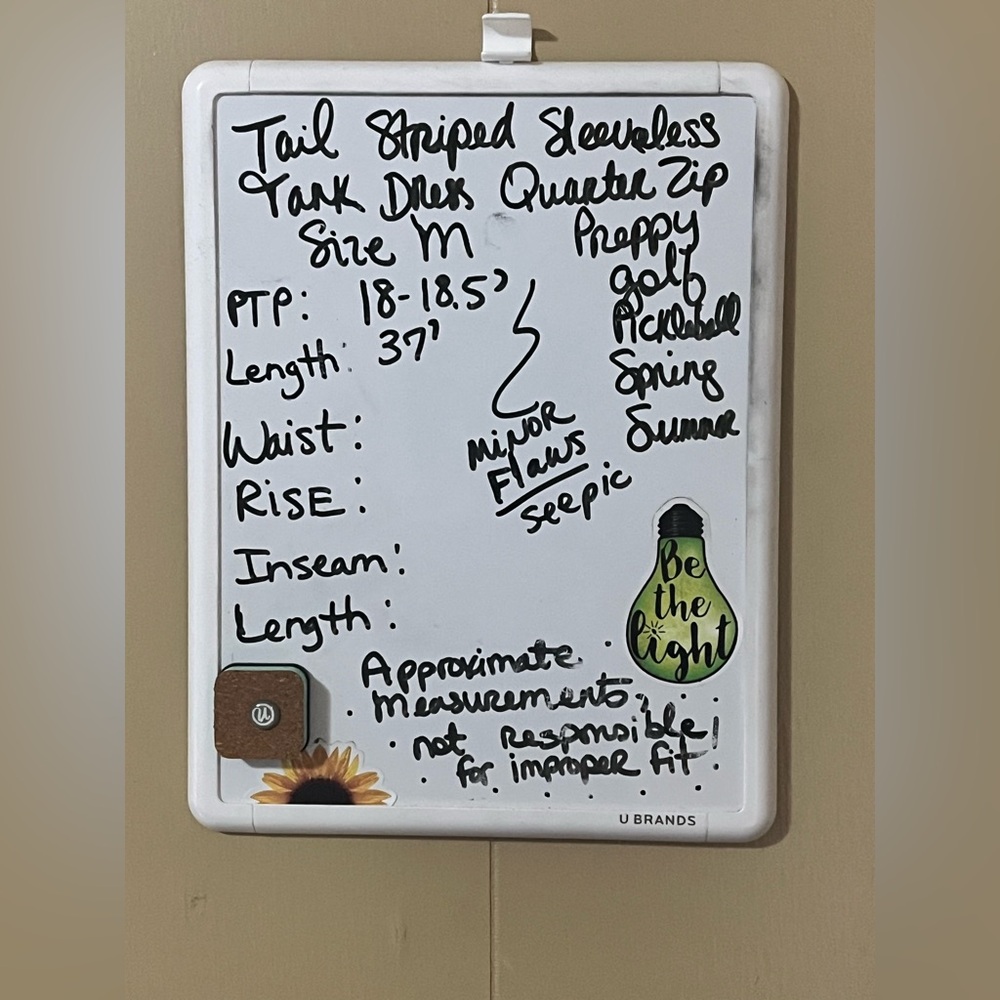 Tail Striped Sleeveless
Tank Dress Quarter Zip
Size M
Preppy
golf
Pickleball
Spring
Summer
PTP: 18-18.5'
Length: 37'
Waist:
RISE:
Inseam:
Length:
MINOR
Flaws
see pic
Be
the
light
Approximate
measurements,
not responsible
for improper fit.
U BRANDS